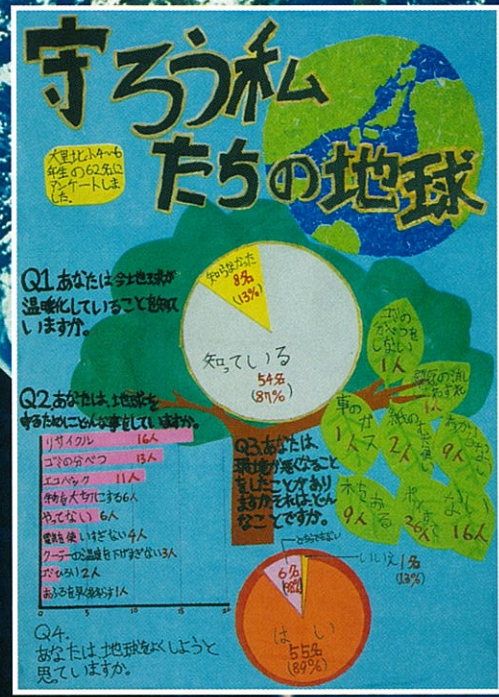 守ろう私
たちの地球
大豆北小4〜6
年生の62名に
アンケートしま
した。
Q1 あなたは今地球が
温暖化していることを知って
いますか。
知らなかった
8名
(13%)
知っている
54名
(87%)
Q2 あなたは、地球を
守るためにどんな事をしていますか。
リサイクル 16人
ゴミの分べつ 13人
エコバック 11人
物を大切にする6人
やってない 6人
電気を使いすぎない4人
クーラーの温度を下げすぎない3人
ゴミひろい2人
おふろを早く 1人
Q3、あなたは、
環境が悪くなること
をしたことがあり
ますか。それは、どん
なことですか。
ゴミの
分べつを
しない
1人
1人
車の
ガス
1人
紙の
2人
9人
木を
9人
26人
ない
16人
Q4.
あなたは地球をよくしようと
思っていますか。
どちらでもない
6名
いいえ1名
はい
55名
(89%)